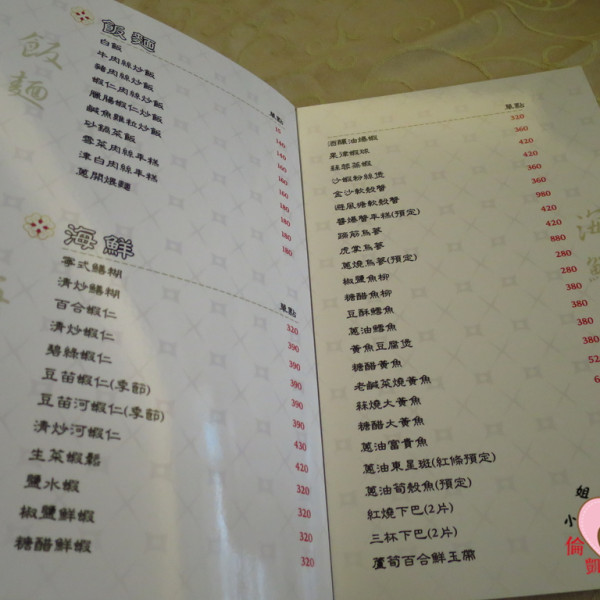 飯麵
飯麵
單點
白飯 10
牛肉絲炒飯 140
豬肉絲炒飯 140
蝦仁肉絲炒飯 160
臘腸蝦仁炒飯 160
鹹魚雞粒炒飯 160
砂鍋菜飯 180
雪菜肉絲年糕 180
津白肉絲年糕 180
蔥開煨麵 180
海鮮
單點
寧式鱔糊 320
清炒鱔糊 390
百合蝦仁 390
清炒蝦仁 390
碧綠蝦仁 390
豆苗蝦仁(季節) 390
豆苗河蝦仁(季節) 430
清炒河蝦仁 420
生菜蝦鬆 320
鹽水蝦 320
椒鹽鮮蝦 320
糖醋鮮蝦 320
單點
酒釀油爆蝦 320
果律蝦球 360
絲瓜菜蝦 420
沙蝦粉絲煲 360
金沙軟殼蟹 420
避風塘軟殼蟹 360
醬爆蟹年糕(預定) 980
蹄筋烏參 420
虎掌烏參 420
蔥燒烏參(預定) 880
椒鹽魚柳 280
糖醋魚柳 280
豆酥鱈魚 380
蔥油鱈魚 380
黃魚豆腐煲 380
糖醋黃魚 380
老鹹菜燒黃魚 380
絲燒大黃魚
糖醋大黃魚
蔥油富貴魚
蔥油東星斑(紅條預定)
蔥油筍殼魚(預定)
紅燒下巴(2片)
三杯下巴(2片)
蘆筍百合鮮玉帶
海鮮
姐
小
倫
凱